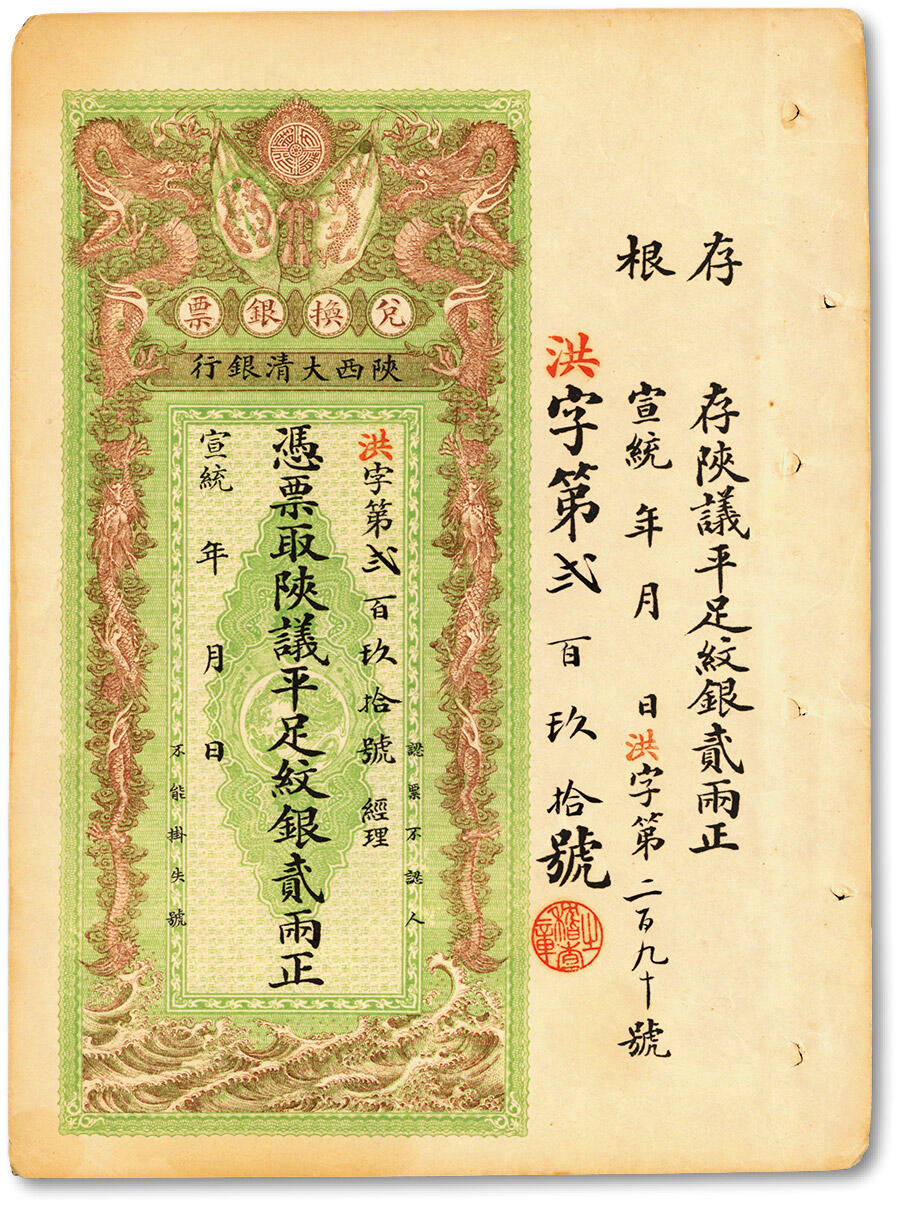 存根
存陝議平足紋銀貳兩正
宣統 年 月 日洪字第二百九十號
洪字第弍百玖拾號
稽查之章
兌換銀票
陝西大清銀行
認票不認人
洪字第弍百玖拾號 經理
憑票取陝議平足紋銀貳兩正
宣統 年 月 日
不能掛失號